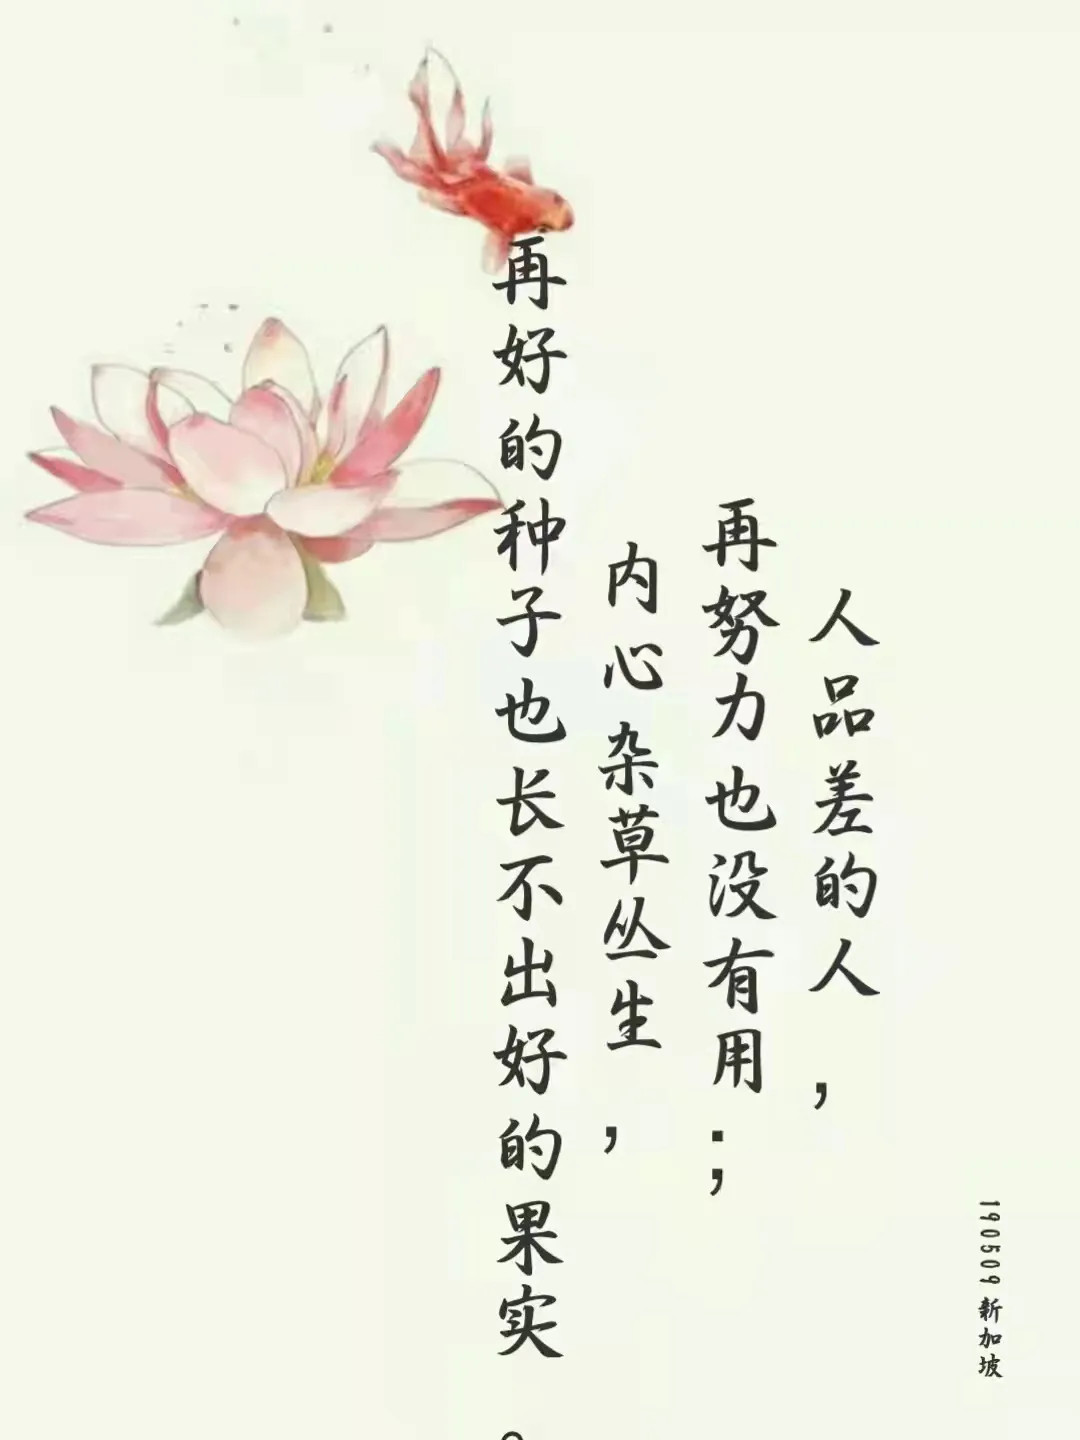 190509 新加坡
人品差的人，
再努力也没有用；
内心杂草丛生，
再好的种子也长不出好的果实。